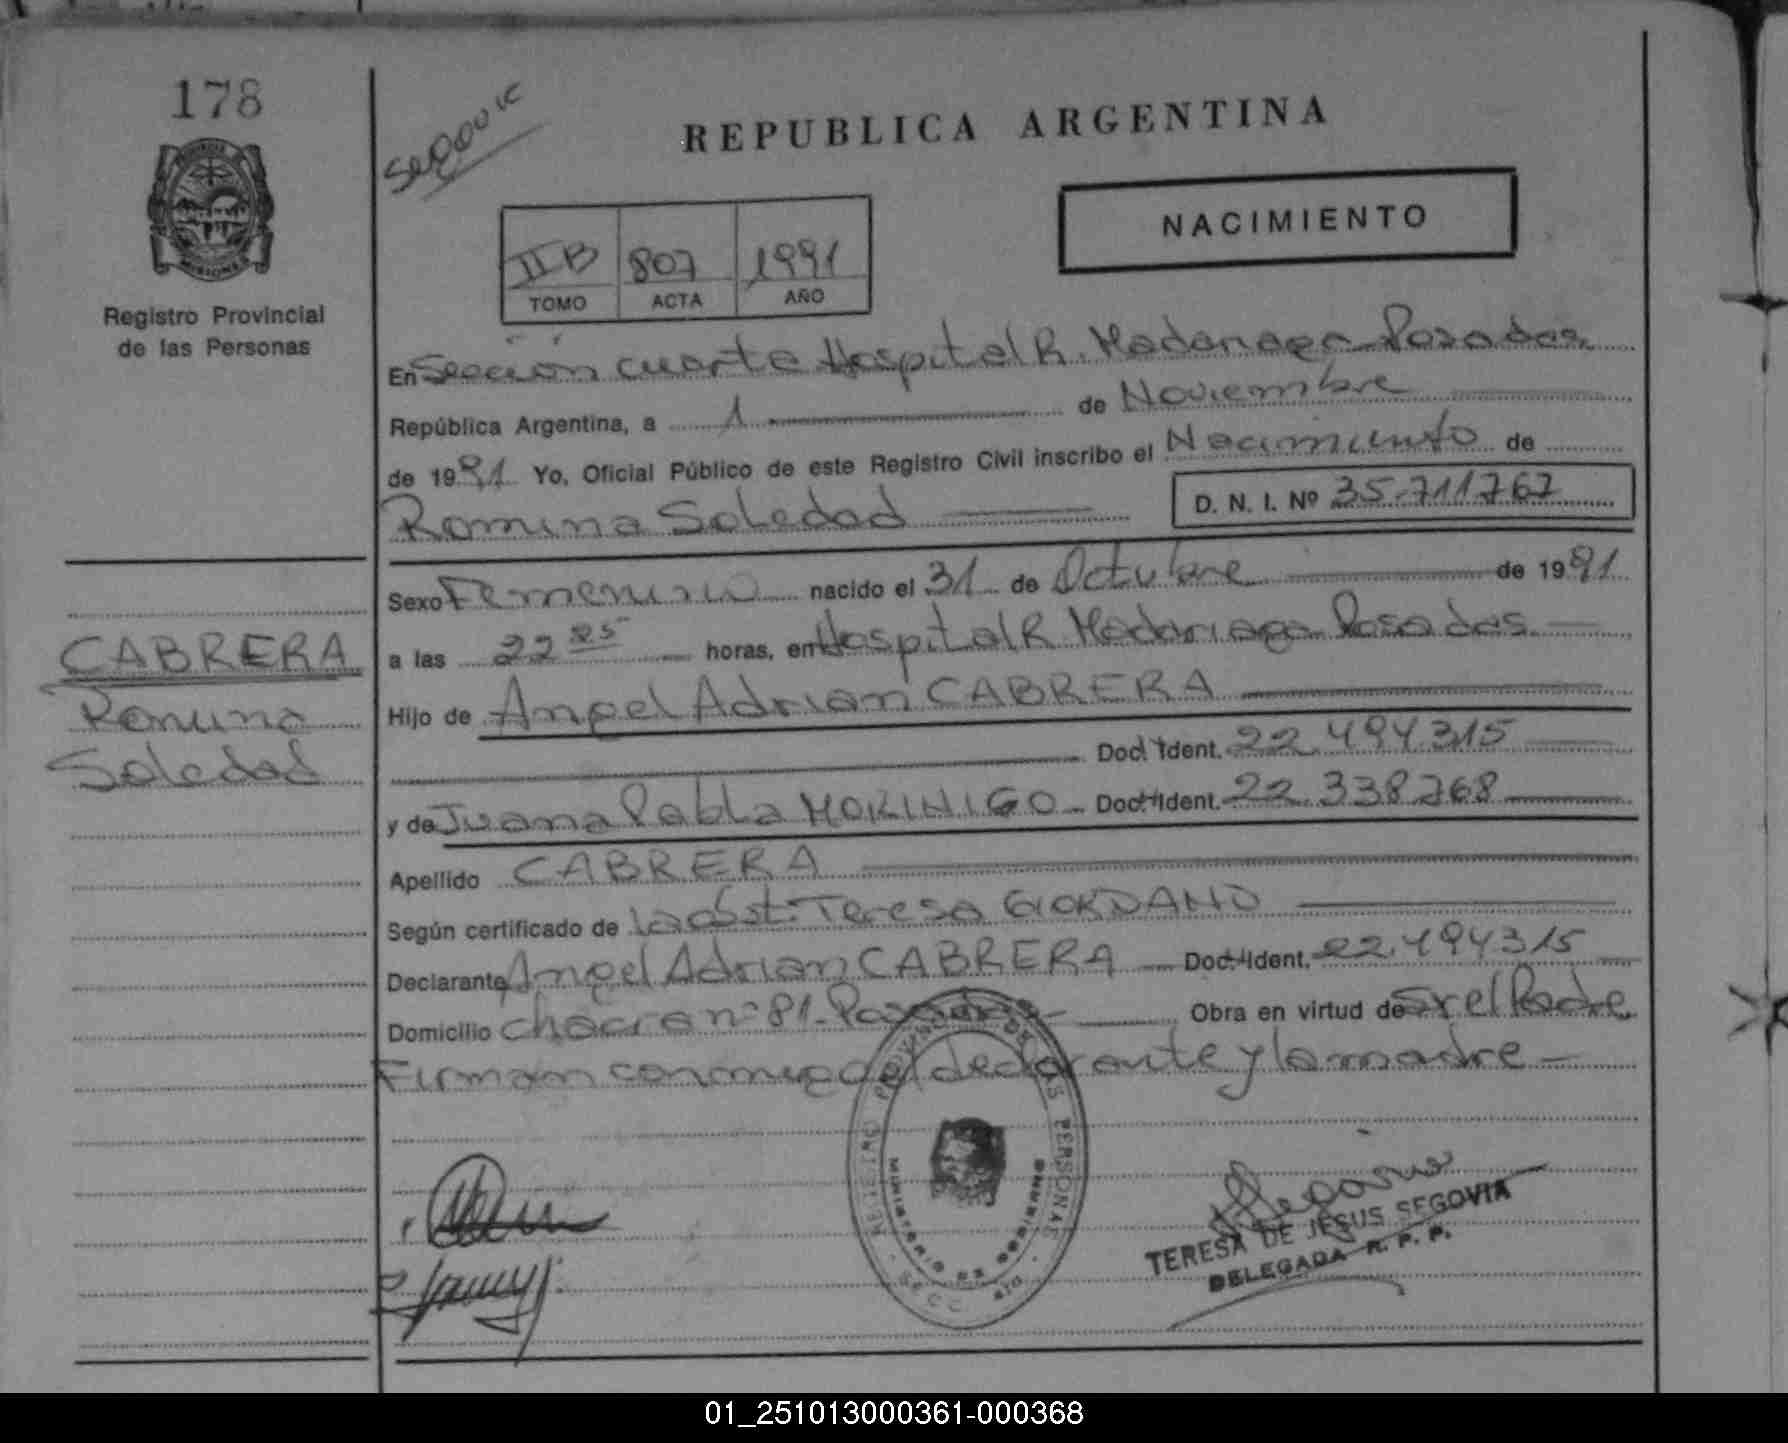 178
Registro Provincial
de las Personas
CABRERA
Romina
Soledad
REPUBLICA ARGENTINA
NACIMIENTO
IIB 807 1991
TOMO ACTA AÑO
En Sección cuarta Hospital R. Madariaga Posadas
República Argentina, a 1 de Noviembre
de 1991 Yo, Oficial Público de este Registro Civil inscribo el Nacimiento de
Romina Soledad D. N. I. Nº 35.711767
Sexo Femenino nacido el 31 de Octubre de 1991
a las 22 25 horas, en Hospital R. Madariaga Posadas
Hijo de Angel Adrian CABRERA
Doc. Ident. 22.494315
y de Juana Pabla MORINIGO Doc. Ident. 22.338768
Apellido CABRERA
Según certificado de la obst. Teresa GIORDANO
Declarante Angel Adrian CABRERA Doc. Ident. 22.494315
Domicilio chacra nº 81 - Posadas Obra en virtud de Ser el Padre
Firman conmigo el declarante y la madre
REGISTRO PROVINCIAL DE LAS PERSONAS
MINISTERIO DE GOBIERNO
TERESA DE JESUS SEGOVIA
DELEGADA R. P. P.
01_251013000361-000368